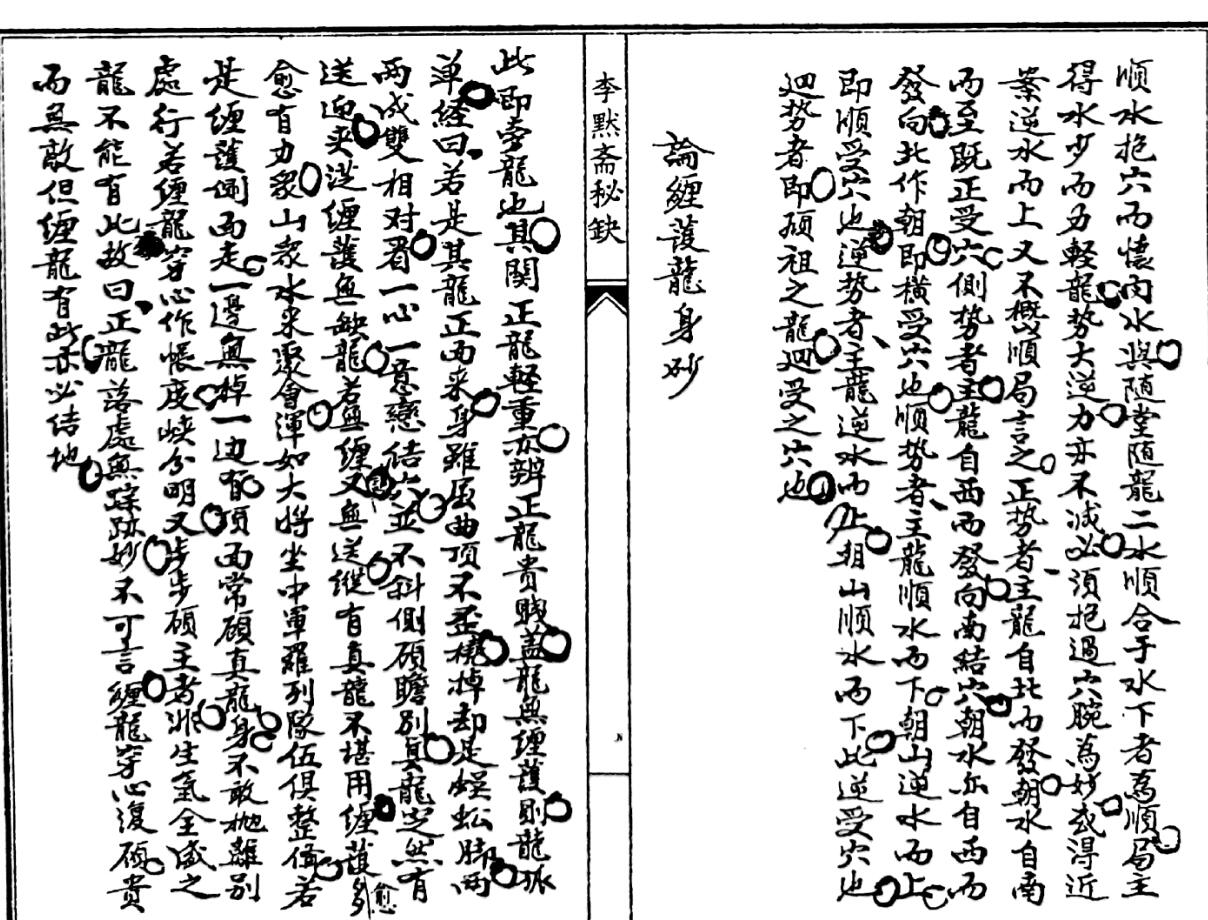 顺水抱穴而懷内水與随堂随龍二水順合于水下者為順局主
得水少而力軽龍势大逆力亦不減必須抱過穴腕為妙或得近
案逆水而上又不概以順局言之正势者主龍自北而發朝水自南
而至既正受穴側势者主龍自西而發向南結穴朝水亦自西而
發向北作朝即横受穴也順势者主龍順水而下朝山逆水而上
即順受穴也逆势者主龍逆水而上朝山順水而下此逆受穴也
廻势者即顧祖之龍廻受之穴也
論纏護龍身砂
李默斋秘缺
此即旁龍也其関正龍軽重亦辨正龍贵賤盖龍無纏護則龍孤
单経曰若是其龍正面来身雖屈曲頂不歪橈棹却是蜈蚣脚两
两成雙相对看一心一意戀結穴並不斜側顧瞻别真龍定然有
送迎夹送纏護無缺龍若無纏又無送縱有真龍不堪用纏護多愈
愈有力衆山衆水来聚會渾如大将坐中軍羅列隊伍俱整偹若
是纏護侧面走一邊無棹一边有頂面常顧真龍身不敢抛離别
處行若纏龍穿心作帳度峡分明又步步顧主者非生氣全盛之
龍不能有此故曰正龍落處無踪跡妙不可言纏龍穿心復顧貴
而無敵但纏龍有此亦必结地